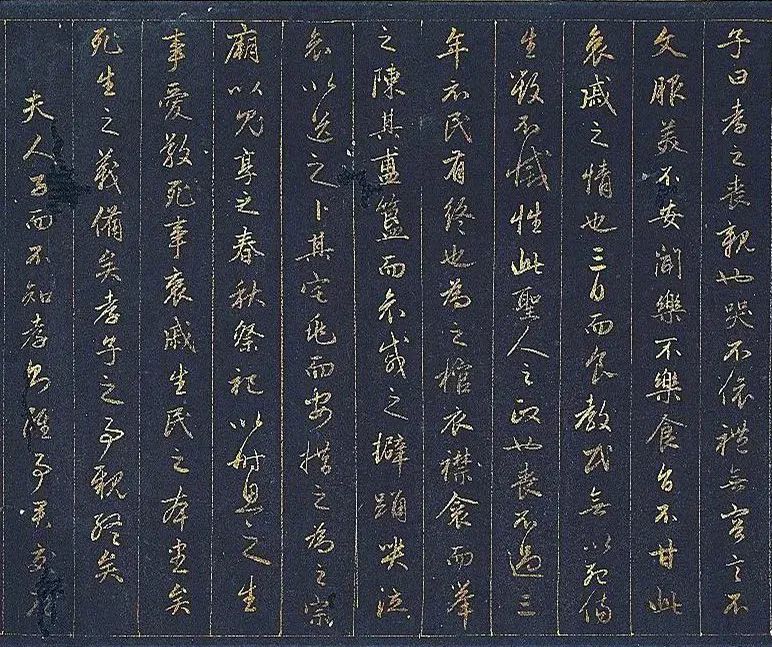 子曰孝之喪親也哭不偯禮無容言不
文服美不安聞樂不樂食旨不甘此
哀戚之情也三日而食教民無以死傷
生毀不滅性此聖人之政也喪不過三
年示民有終也為之棺衣襟衾而舉
之陳其簠簋而哀慼之擗踊哭泣
哀以送之卜其宅兆而安措之為之宗
廟以鬼享之春秋祭祀以時思之生
事愛敬死事哀戚生民之本盡矣
死生之義備矣孝子之事親終矣
夫人子而不知孝